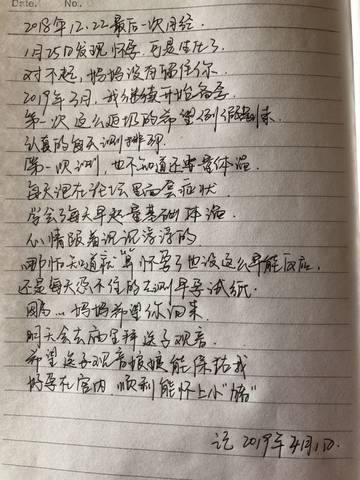 Date. No.
2018年12.22最后一次月经.
1月25日发现怀孕.可是生化了
对不起,妈妈没有留住你.
2019年3月,我继续开始备孕.
第一次这么迫切的希望例假到来.
认真的每天测排卵.
第一次测,也不知道还要量体温.
每天泡在论坛里面查症状
学会了每天早起量基础体温
心情跟着沉沉浮浮的.
哪怕知道就算怀孕了也没这么早能反应.
还是每天忍不住的去测早孕试纸.
因为…妈妈希望你回来.
明天会去庙里拜送子观音.
希望送子观音娘娘能保佑我
好孕札宫内.顺利能怀上小"猪"
记 2019年4月1日.